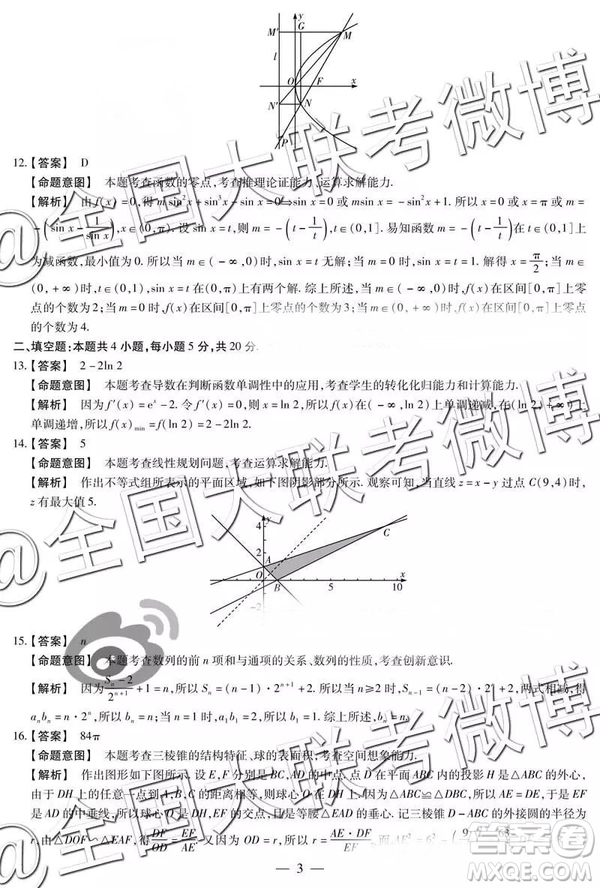 y
M′
G
M
l
O
F
x
N′
N
P
12.【答案】 D
【命题意图】 本题考查函数的零点,考查推理论证能力、运算求解能力.
【解析】 由 f(x)=0,得 m sin²x+sin³x-sin x=0⇒sin x=0 或 msin x=-sin²x
-(sin x-1/sin x),x∈(0,π). 设 sin x=t,则 m=-(t-1/t),t∈(0,1]. 易知函数 m=-(t-1/t)
为减函数,最小值为 0. 所以当 m∈(-∞,0)时,sin x=t 无解;当 m=0 时,sin x=t=1. 解得 x=π/2;当 m∈
(0,+∞)时,t∈(0,1),sin x=t 在(0,π)上有两个解. 综上所述,当 m∈(-∞,0)时,f(x)在区间[0,π]上零
点的个数为 2;当 m=0 时,f(x)在区间[0,π]上零点的个数为 3;当 m∈(0,+∞)时,f(x)在区间[0,π]上零点
的个数为 4.
二、填空题:本题共 4 小题,每小题 5 分,共 20 分.
13.【答案】 2-2ln 2
【命题意图】 本题考查导数在判断函数单调性中的应用,考查学生的转化化归能力和计算能力.
【解析】 因为 f′(x)=eˣ-2. 令 f′(x)=0,得 x=ln 2,所以 f(x)在(-∞,ln 2)上单调递减,在(ln 2,+∞)上
单调递增,所以 f(x)min=f(ln 2)=2-2ln 2.
14.【答案】 5
【命题意图】 本题考查线性规划问题,考查运算求解能力.
【解析】 作出不等式组所表示的平面区域,如下图阴影部分所示. 观察可知,当直线 z=x-y 过点 C(9,4)时,
z 有最大值 5.
4
2
A
O
B
C
5
10
-2
15.【答案】 n
【命题意图】 本题考查数列的前 n 项和与通项的关系、数列的性质,考查创新意识.
【解析】 因为 (Sₙ-2)/2ⁿ⁺¹+1=n,所以 Sₙ=(n-1)·2ⁿ⁺¹+2. 所以当 n≥2 时,Sₙ₋₁=(n-2)·2ⁿ+2,两式相减,得
aₙbₙ=n·2ⁿ,所以 bₙ=n;当 n=1 时,a₁b₁=2,所以 b₁=1. 综上所述,bₙ=n.
16.【答案】 84π
【命题意图】 本题考查三棱锥的结构特征、球的表面积;考查空间想象能力.
【解析】 作出图形如下图所示. 设 E,F 分别是 BC,AD 的中点,点 D 在平面 ABC 内的投影 H 是△ABC 的外心,
由于 DH 上的任意一点到 A,B,C 的距离相等,则球心 O 在 DH 上. 因为△ABC≌△DBC,所以 AE=DE,于是 EF
是 AD 的中垂线,所以球心 O 是 DH,EF 的交点,且是球心. 记三棱锥 D-ABC 的外接圆的半径为
r,由△DOF∽△EAF,得 DF/EF=OD/AE=r/AE. 又因为 OD=r,所以 r=AE·DF/EF.
— 3 —
@全国大联考微博
@全国大联考微博
答案圈
MXQE.COM